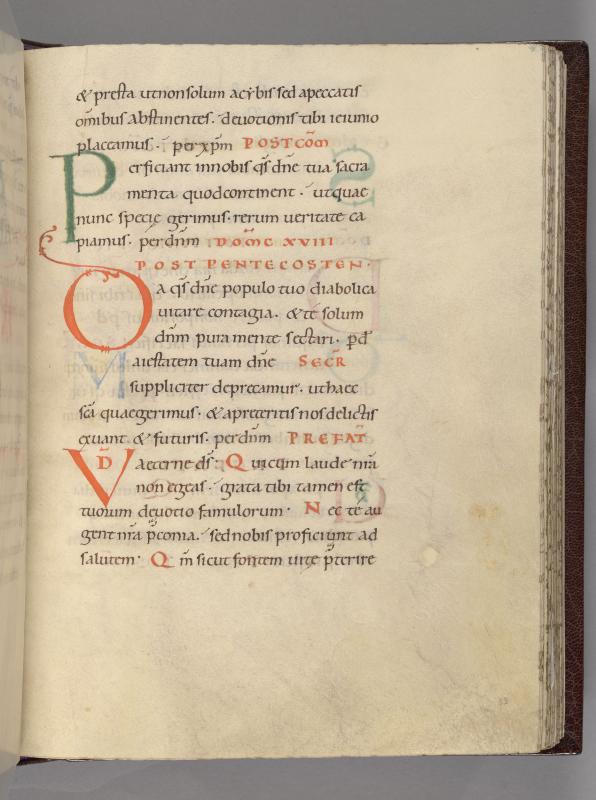 & presta ut non solum a cybis sed a peccatis
om̄ibus abstinentes. devotionis tibi ieiunio
placeamus. per xp̄m POSTCOM̄
Perficiant in nobis qs̄ dn̄e tua sacra
menta quod continent. ut quae
nunc specie gerimus. rerum veritate ca
piamus. per dn̄m DOM̄C XVIII
POST PENTECOSTEN.
Da qs̄ dn̄e populo tuo diabolica
vitare contagia. & te solum
dn̄m pura mente sectari. p̄d̄
Maiestatem tuam dn̄e SECR̄
suppliciter deprecamur. ut haec
sc̄a quae gerimus. & a preteritis nos delictis
exuant & futuris. per dn̄m PREFAT̄
VD̄ Aeterne ds̄. Qui cum laude nr̄a
non egeas. grata tibi tamen est
tuorum devotio famulorum. Nec te au
gent nr̄a p̄conia. sed nobis proficiunt ad
salutem. Qm̄ sicut fontem vite p̄terire